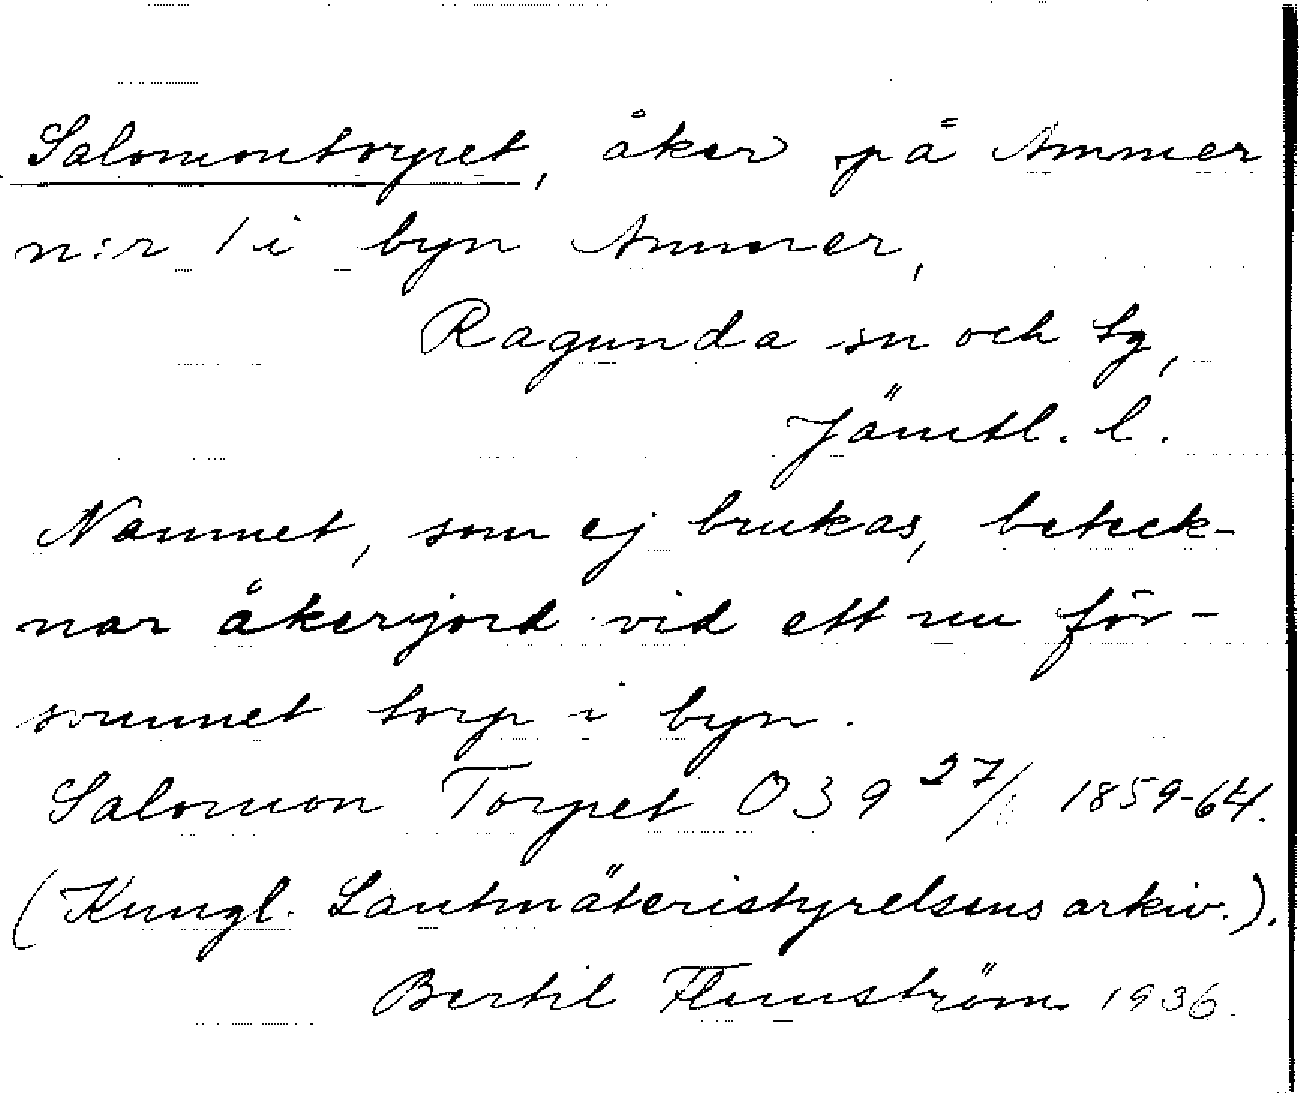 Salomontorpet, åker på Ammer
n:r 1 i byn Ammer,
Ragunda sn och tg,
Jämtl. l.
Namnet, som ej brukas, beteck-
nar åkerjord vid ett nu för-
svunnet torp i byn.
Salomon Torpet O39 27/ 1859-64.
(Kungl. Lantmäteristyrelsens arkiv.).
Bertil Flemström 1936.